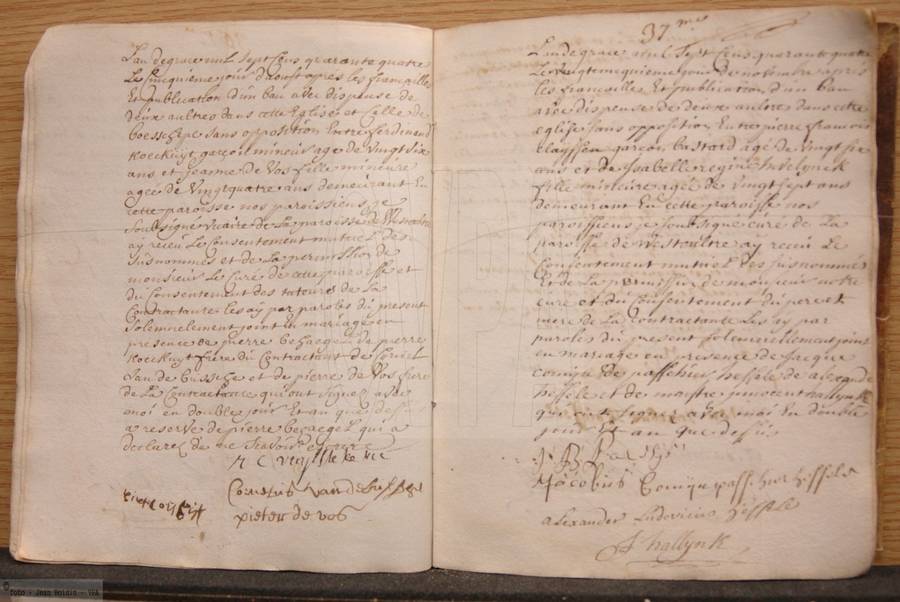 L'an de grace mil sept cens quarante quatre
Le cincquieme jour d'aoust apres les fiancailles
Et publication d'un ban avec dispense de
deux aultres dans cette Eglise et celle de
boeschepe sans opposition Entre ferdinand
Koeckuyt garçon mineur age de vingt six
ans et jeanne de Vos fille mineure
agée de Vingtquatre ans demeurant En
cette paroisse nos paroissiens je
soubsigné vicaire de La paroisse de Westoutre
ay reçeu Le Consentement mutuel des
susnommes et de La permission de
monsieur Le Curé de cette paroisse et
du Consentement des tuteurs de La
Contractante les ay par paroles du present
solemnelement joint en mariage en
presence de pierre behaegel de pierre
Koeckuyt frere du Contractant de Cornil
van de bussche et de pierre de Vos frere
de La Contractante qui ont signez avec
moi en double jour Et an que dessus
a reserve de pierre behaegel qui a
declarez de ne scavoir ecrire
Cornelis van de bussche
pieter de vos
37
L'an de grace mil sept cens quarante quatre
Le vingtcincquieme jour de novembre apres
les fiancailles Et publication d'un ban
avec dispense de deux aultres dans cette
eglise sans opposition Entre pierre francois
Clayssen garçon bastard agé de vingt six
ans et de Isabelle regine
fille mineure agée de vingt sept ans
demeurant En cette paroisse nos
paroissiens je soubsigné curé de La
paroisse de Westoutre ay reçeu Le
Consentement mutuel des susnommés
Et de La permission de monsieur notre
curé et du Consentement du pere et
mere de La Contractante Les ay par
paroles du present solemnellement joint
en mariage en presence de Jacque
Comijn de passchier hessele de alexandre
hessele et de maistre innocent hallynk
qui ont signes avec moi En double
jour Et an que dessus
Jacobus Comijn passchier hessele
alexander Ludovicus hessele
J hallynk
foto - Jean Boidin - VVA